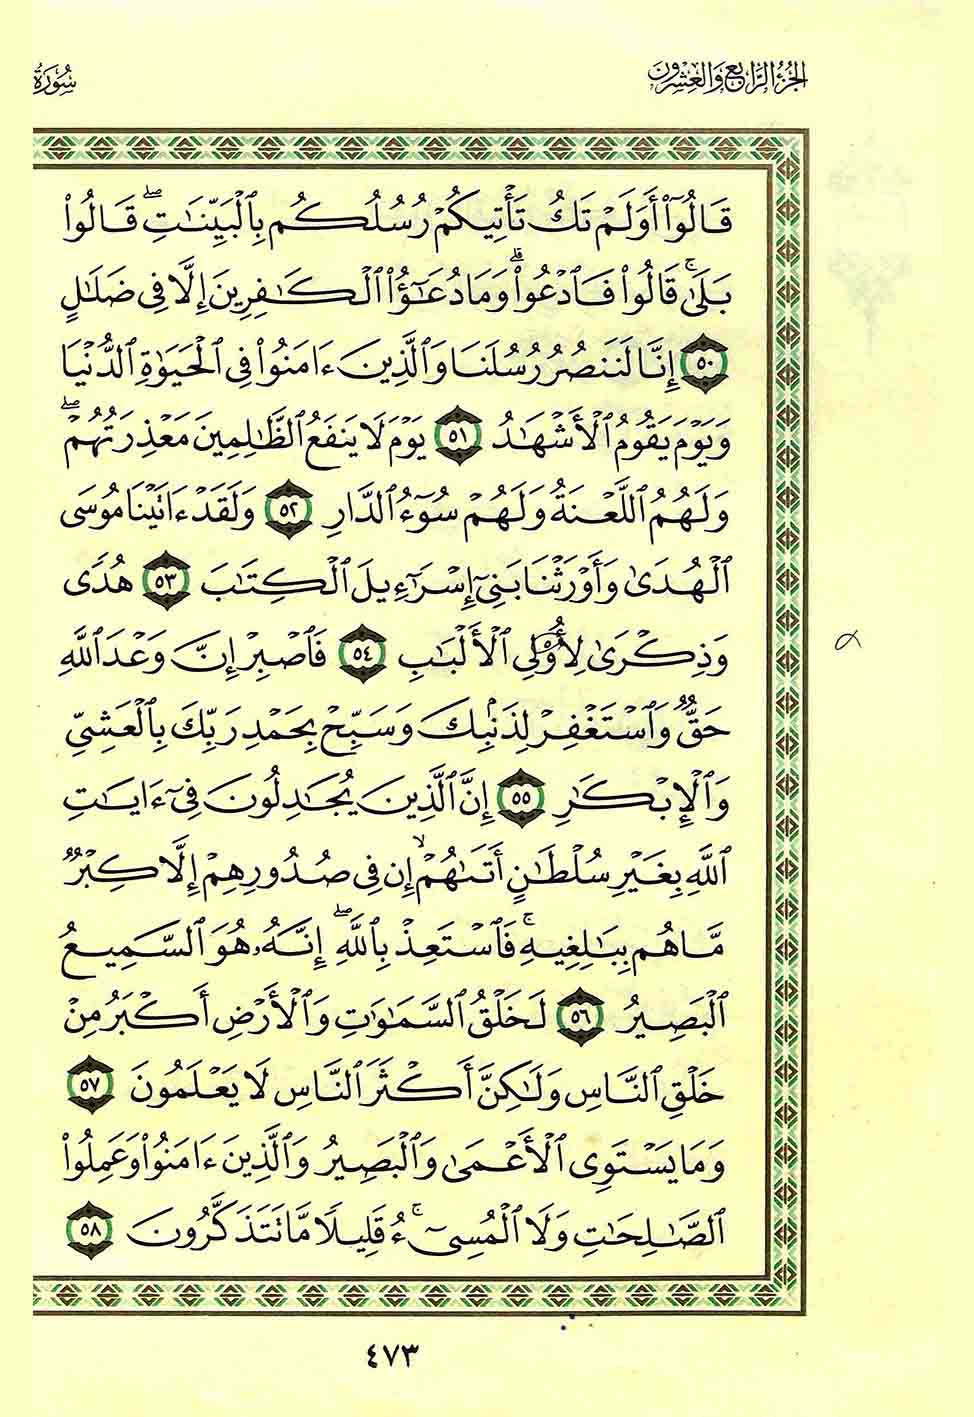 الجُزْءُ الرَّابِعُ وَالعِشْرُونَ
سُورَةُ
قَالُوٓا۟ أَوَلَمْ تَكُ تَأْتِيكُمْ رُسُلُكُم بِٱلْبَيِّنَٰتِ ۖ قَالُوا۟
بَلَىٰ ۚ قَالُوا۟ فَٱدْعُوا۟ ۗ وَمَا دُعَٰٓؤُا۟ ٱلْكَٰفِرِينَ إِلَّا فِى ضَلَٰلٍ
٥٠ إِنَّا لَنَنصُرُ رُسُلَنَا وَٱلَّذِينَ ءَامَنُوا۟ فِى ٱلْحَيَوٰةِ ٱلدُّنْيَا
وَيَوْمَ يَقُومُ ٱلْأَشْهَٰدُ ٥١ يَوْمَ لَا يَنفَعُ ٱلظَّٰلِمِينَ مَعْذِرَتُهُمْ ۖ
وَلَهُمُ ٱللَّعْنَةُ وَلَهُمْ سُوٓءُ ٱلدَّارِ ٥٢ وَلَقَدْ ءَاتَيْنَا مُوسَى
ٱلْهُدَىٰ وَأَوْرَثْنَا بَنِىٓ إِسْرَٰٓءِيلَ ٱلْكِتَٰبَ ٥٣ هُدًى
وَذِكْرَىٰ لِأُو۟لِى ٱلْأَلْبَٰبِ ٥٤ فَٱصْبِرْ إِنَّ وَعْدَ ٱللَّهِ
حَقٌّ وَٱسْتَغْفِرْ لِذَنۢبِكَ وَسَبِّحْ بِحَمْدِ رَبِّكَ بِٱلْعَشِىِّ
وَٱلْإِبْكَٰرِ ٥٥ إِنَّ ٱلَّذِينَ يُجَٰدِلُونَ فِىٓ ءَايَٰتِ
ٱللَّهِ بِغَيْرِ سُلْطَٰنٍ أَتَىٰهُمْ ۙ إِن فِى صُدُورِهِمْ إِلَّا كِبْرٌ
مَّا هُم بِبَٰلِغِيهِ ۚ فَٱسْتَعِذْ بِٱللَّهِ ۖ إِنَّهُۥ هُوَ ٱلسَّمِيعُ
ٱلْبَصِيرُ ٥٦ لَخَلْقُ ٱلسَّمَٰوَٰتِ وَٱلْأَرْضِ أَكْبَرُ مِنْ
خَلْقِ ٱلنَّاسِ وَلَٰكِنَّ أَكْثَرَ ٱلنَّاسِ لَا يَعْلَمُونَ ٥٧
وَمَا يَسْتَوِى ٱلْأَعْمَىٰ وَٱلْبَصِيرُ وَٱلَّذِينَ ءَامَنُوا۟ وَعَمِلُوا۟
ٱلصَّٰلِحَٰتِ وَلَا ٱلْمُسِىٓءُ ۚ قَلِيلًا مَّا تَتَذَكَّرُونَ ٥٨
٤٧٣